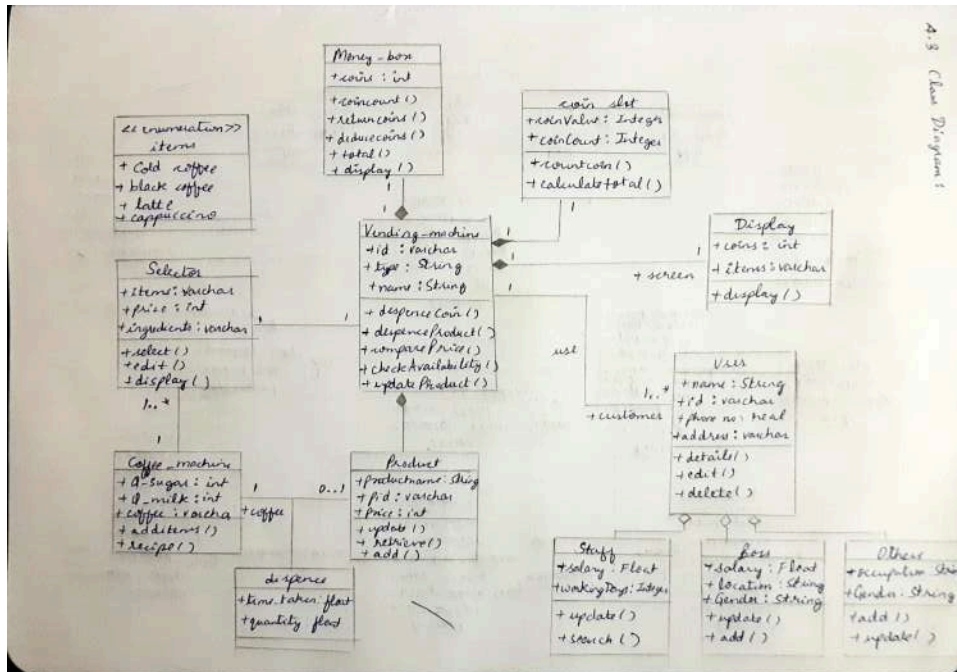 4.3 Class Diagram :
Money_box
+ coins : int
+ coincount ( )
+ returncoins ( )
+ deducecoins ( )
+ total ( )
+ display ( )
1
1
coin slot
+ coinValue : Integer
+ coinCount : Integer
+ countcoin ( )
+ calculatetotal ( )
1
1
<< enumeration >>
items
+ Cold coffee
+ black coffee
+ latte
+ cappuccino
Vending_machine
+ id : varchar
+ type : String
+ name : String
+ despenceCoin ( )
+ despenceProduct ( )
+ comparePrice ( )
+ checkAvailability ( )
+ updateProduct ( )
1
1
+ screen
Display
+ coins : int
+ items : varchar
+ display ( )
Selector
+ Items : varchar
+ price : int
+ ingredients : varchar
+ select ( )
+ edit ( )
+ display ( )
1
1
1..*
1
1
use
1..*
+ customer
User
+ name : String
+ id : varchar
+ phone no : real
+ address : varchar
+ details ( )
+ edit ( )
+ delete ( )
Coffee_machine
+ Q_sugar : int
+ Q_milk : int
+ coffee : varchar
+ additems ( )
+ recipe ( )
1
+ coffee
0..1
Product
+ productname : String
+ Pid : varchar
+ Price : int
+ update ( )
+ retrieve ( )
+ add ( )
dispence
+ time_taken : float
+ quantity float
Staff
+ salary : Float
+ workingDays : Integer
+ update ( )
+ search ( )
Boss
+ salary : Float
+ location : String
+ Gender : String
+ update ( )
+ add ( )
Others
+ occupation String
+ Gender : String
+ add ( )
+ update ( )